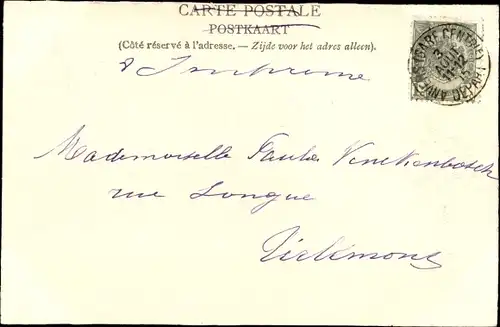 CARTE POSTALE
POSTKAART
(Côté réservé à l'adresse. — Zijde voor het adres alleen).
Imprimé
Mademoiselle Paula
rue Longue
Tirlemont
ANVERS (GARE CENTRALE) DEPART